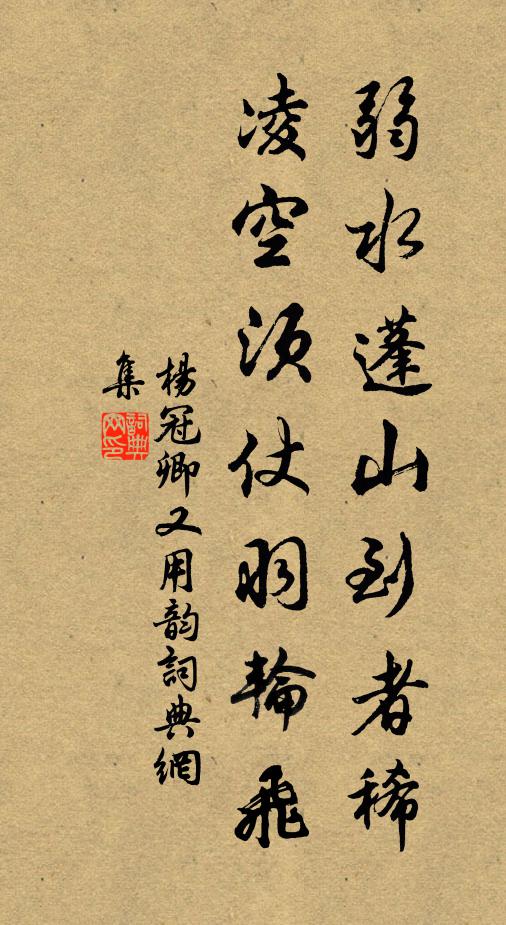 弱水蓬山到者稀
凌空須仗羽輪飛
楊冠卿又用韵詞典網
集
詞典網印